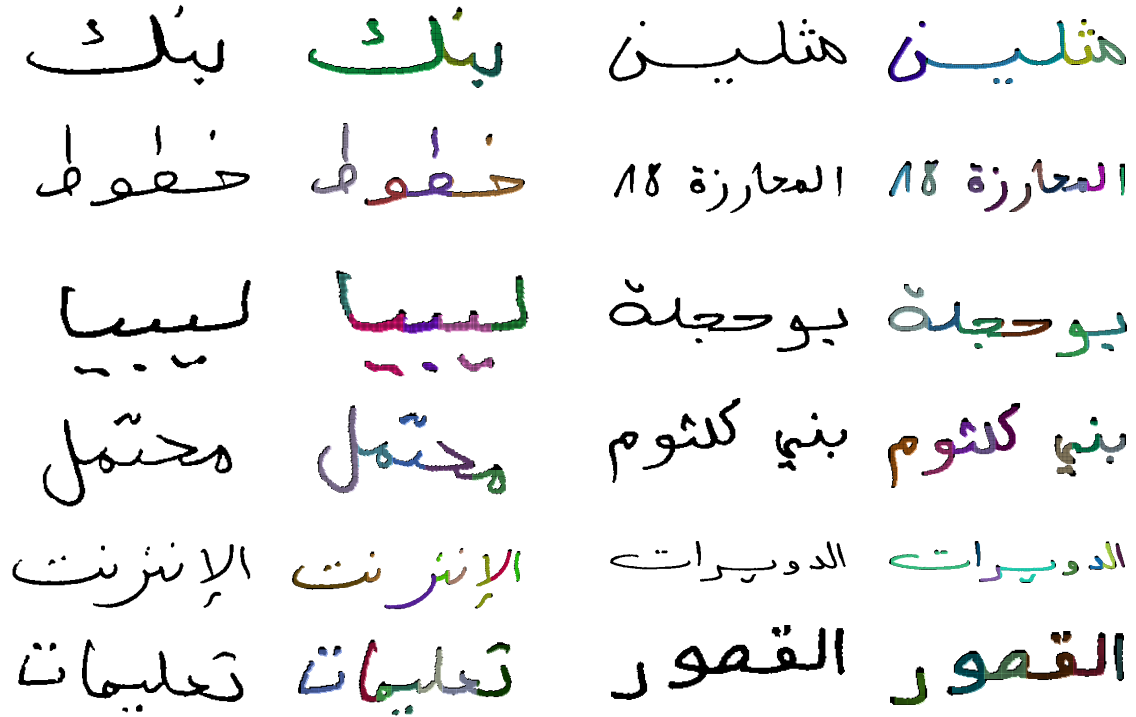 مثلين مثلين بنك بنك
المعارزة 18 المعارزة 18 خطوط خطوط
بوحجلة بوحجلة ليبيا ليبيا
بني كلثوم بني كلثوم محتمل محتمل
الدويرات الدويرات الإنترنت الإنترنت
القصور القصور تعليمات تعليمات